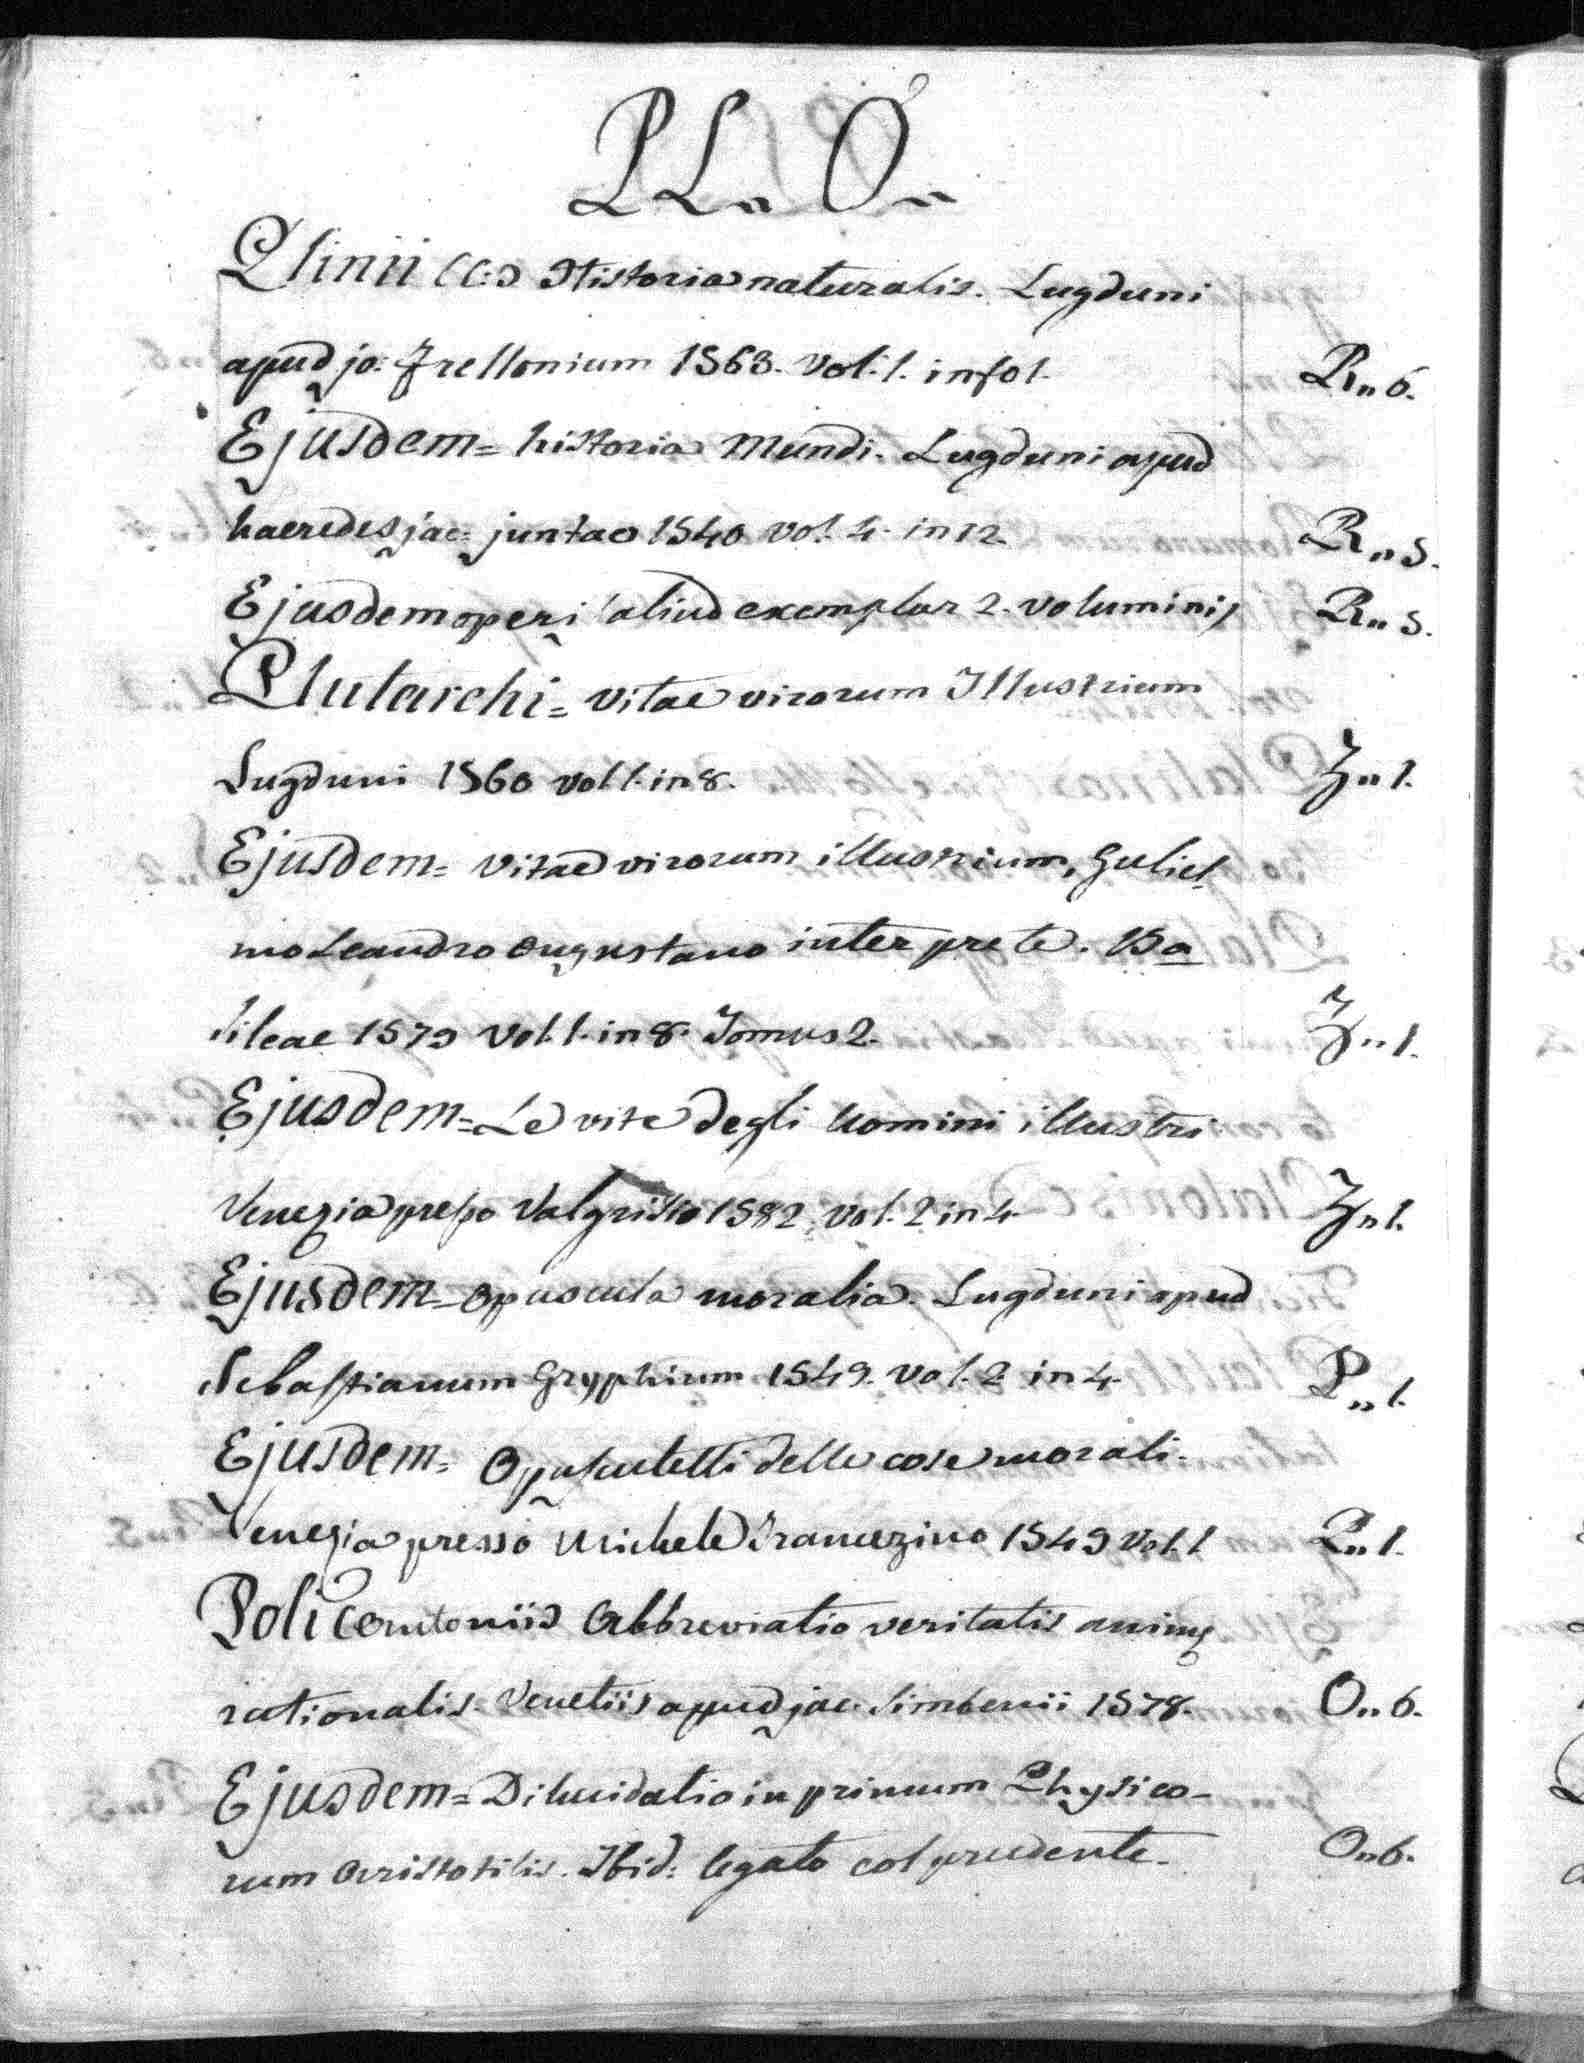 PL. O.
Plinii (C:) Historia naturalis. Lugduni
apud jo: Frellonium 1563. vol. 1. in fol. R.. 6.
Ejusdem = historia Mundi. Lugduni apud
haeredes jac: juntae 1540 vol. 4. in 12. R.. 5.
Ejusdem operis aliud exemplar 2. voluminis R.. 5.
Plutarchi = vitae virorum Illustrium
Lugduni 1560 vol. 1. in 8. Z.. 1.
Ejusdem = vitae virorum illustrium, Guliel
mo Leandro augustano interprete. Ba
sileae 1579 vol. 1. in 8. Tomus 2. Z.. 1.
Ejusdem = Le vite degli Uomini illustri
Venezia presso Valgrisio 1582, vol. 2 in 4. Z.. 1.
Ejusdem = opuscula moralia. Lugduni apud
Sebastianum Gryphium 1549. vol. 2 in 4. P.. 1.
Ejusdem = Opusculetti delle cose morali.
Venezia presso Michele Tramezino 1549 vol. 1 P.. 1.
Poli (antonii) Abbreviatio veritatis animę
rationalis. Venetiis apud jac. Simbenii 1578. O.. 6.
Ejusdem = Dilucidatio in primum Physico-
rum Aristotilis. Ibid: legato col precedente. O.. 6.